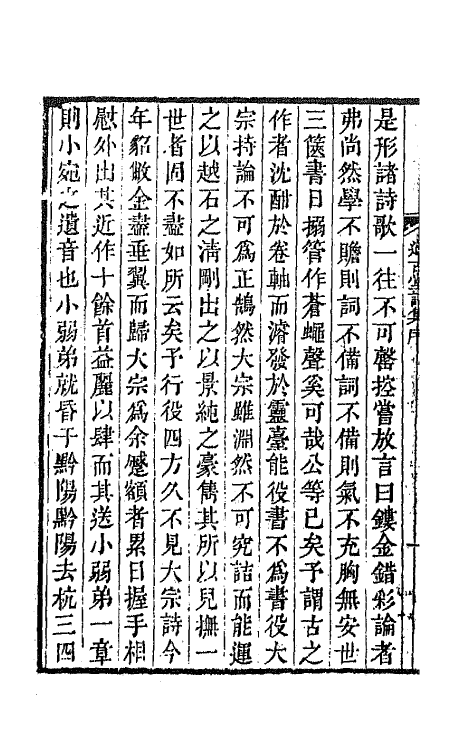 是形諸詩歌一往不可磬控嘗放言曰鏤金錯彩論者
弗尚然學不贍則詞不備詞不備則氣不充胸無安世
三篋書日搦管作蒼蠅聲奚可哉公等已矣予謂古之
作者沈酣於卷軸而濬發於靈臺能役書不為書役大
宗持論不可為正鵠然大宗雖淵然不可究詰而能運
之以越石之清剛出之以景純之豪雋其所以兒撫一
世者固不盡如所云矣予行役四方久不見大宗詩今
年貂敝金盡垂翼而歸大宗為余蹙額者累日握手相
慰外出其近作十餘首益麗以肆而其送小弱弟一章
則小宛之遺音也小弱弟就昏于黔陽黔陽去杭三四